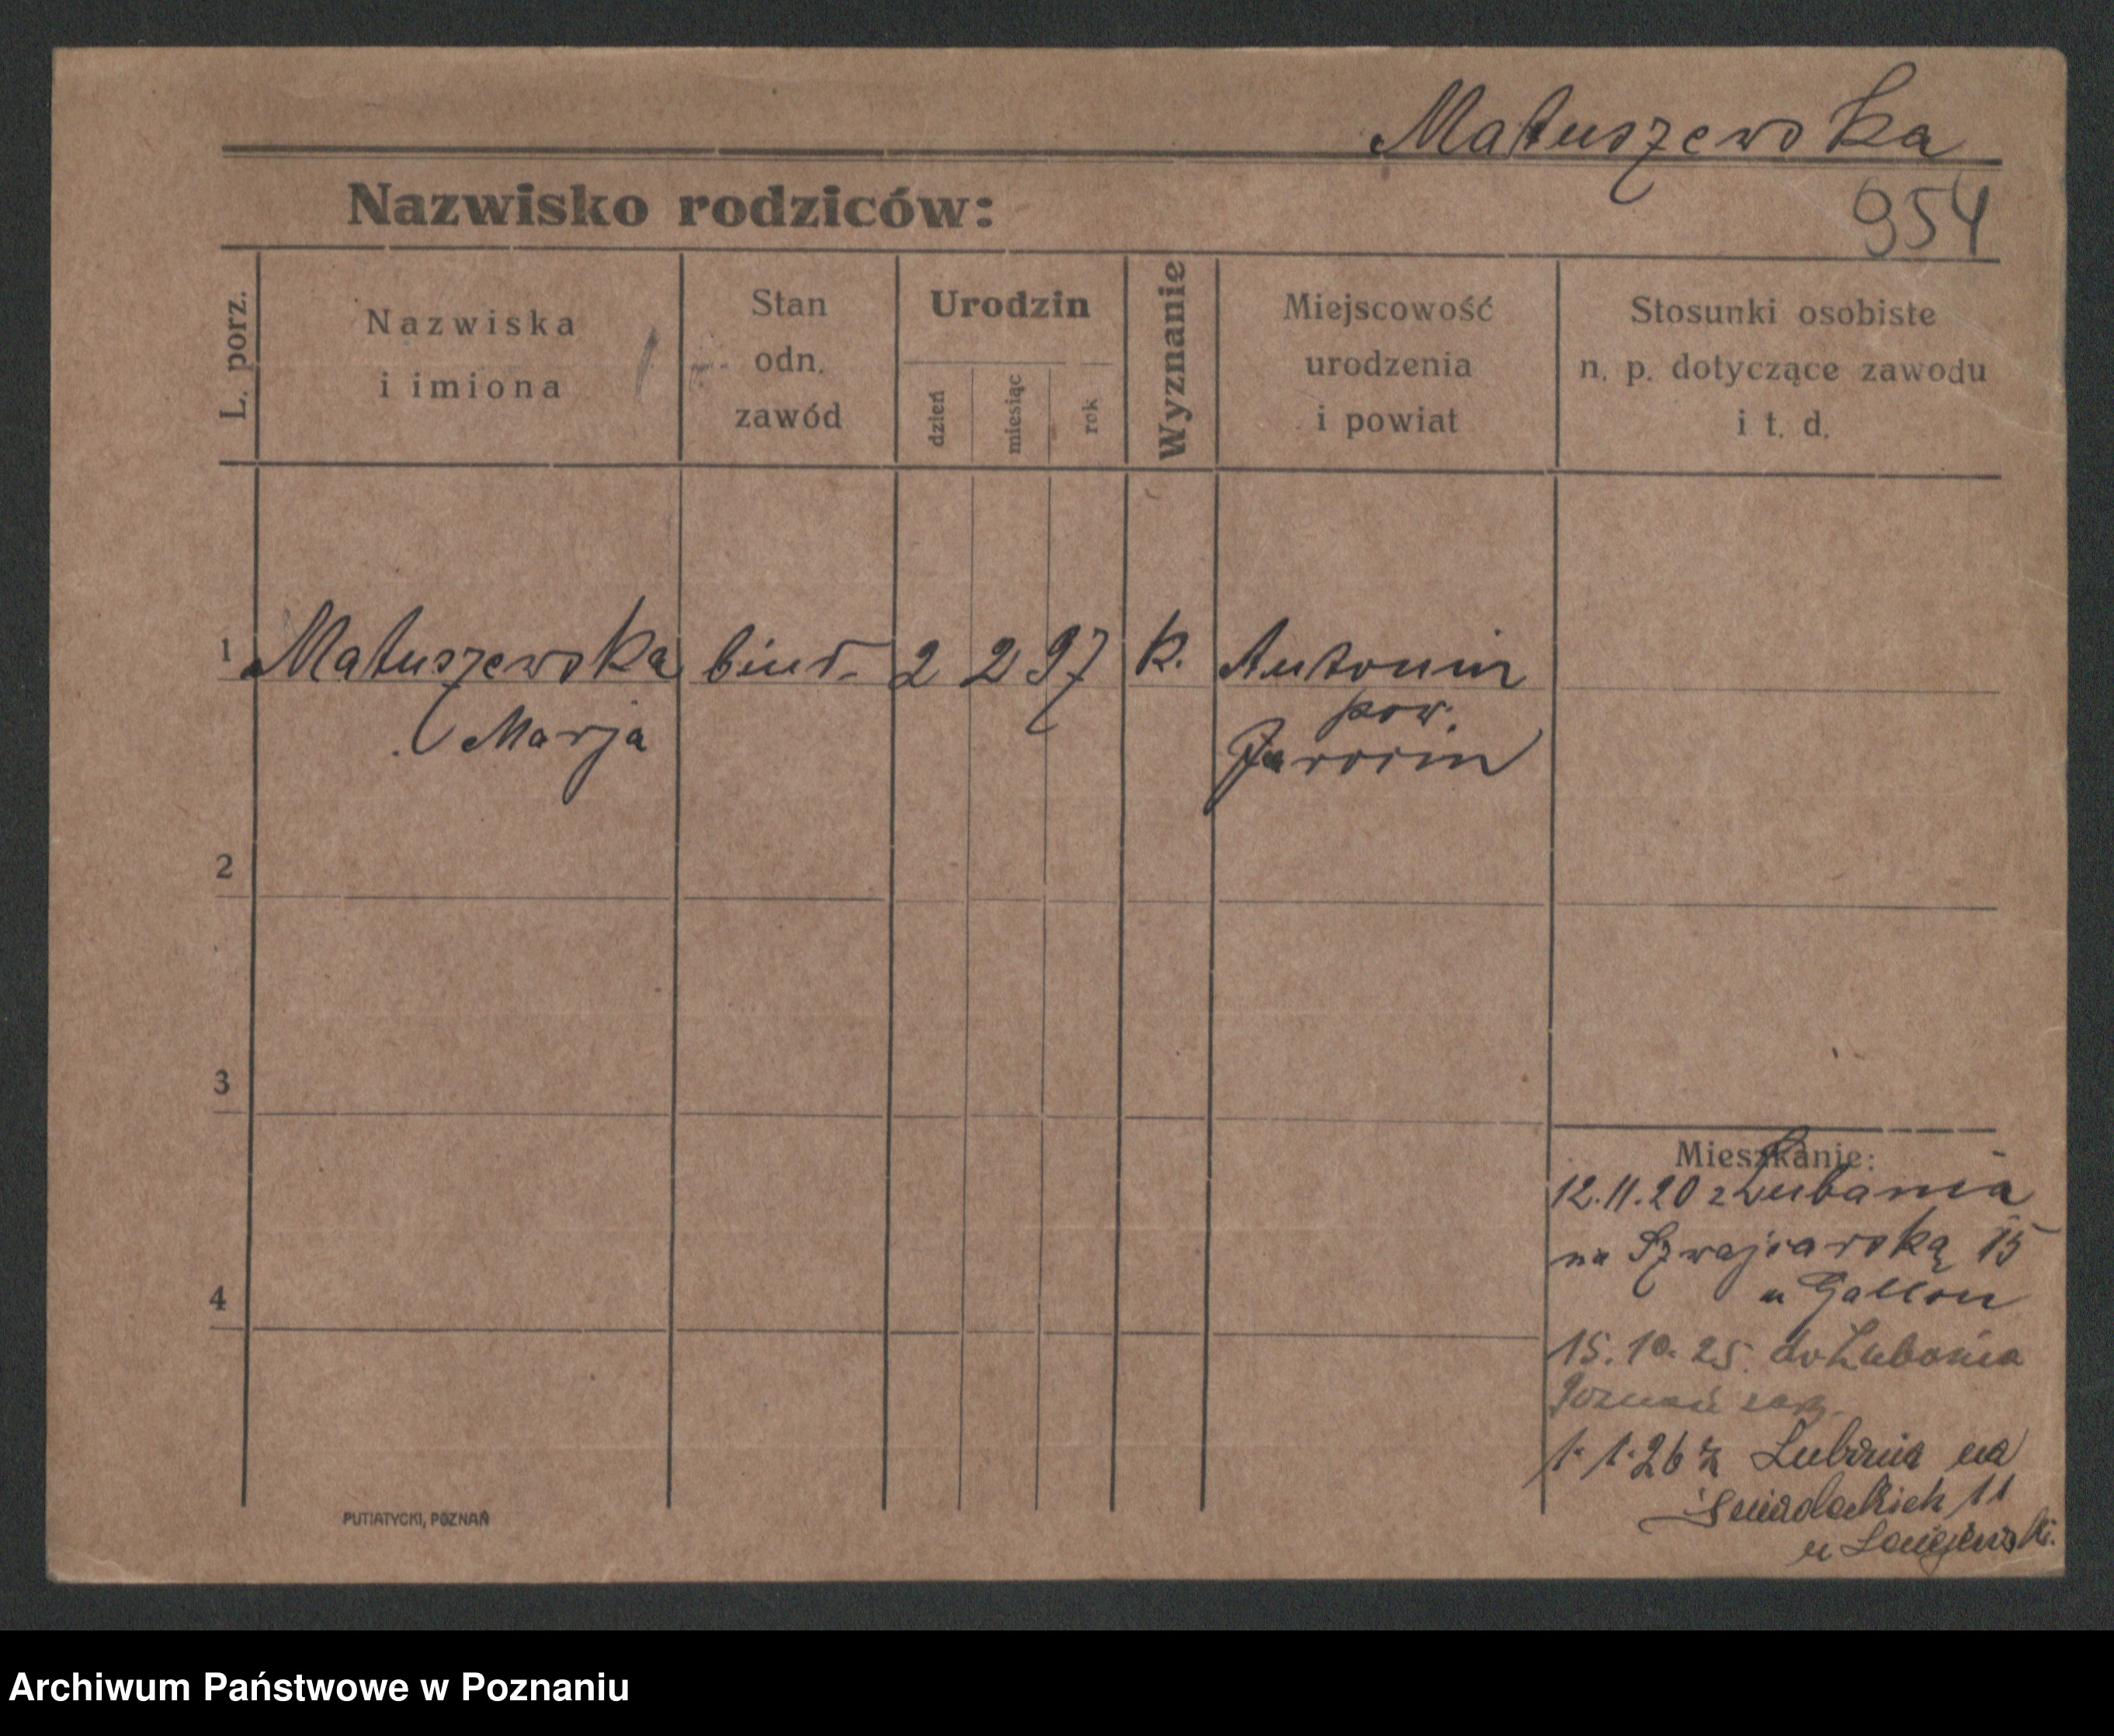 Matuszewska
Nazwisko rodziców:
954
L. porz.
Nazwiska
i imiona
Stan
odn.
zawód
Urodzin
dzień
miesiąc
rok
Wyznanie
Miejscowość
urodzenia
i powiat
Stosunki osobiste
n. p. dotyczące zawodu
i t. d.
1 Matuszewska biur. 2 2 97 k. Antonin
pow.
Marja Jarocin
2
3
4
Mieszkanie:
12.11.20 z Lubania
na Szwajcarską 15
u Gallon
15.10.25. do Lubonia
Poznań
1.1.26 z Lubonia na
Śniadeckich 11
u
PUTIATYCKI, POZNAŃ
Archiwum Państwowe w Poznaniu